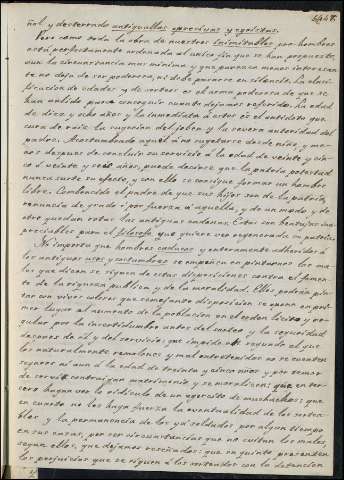 ñol y desterrado antiguallas opresivas y egoistas.
Pero como toda la obra de nuestros inimitables pro-hombres
está perfectamente ordenada al unico fin que se han propuesto,
aun la circunstancia mas minima y que parezca menos interesan
te no deja de ser poderosa, ni debe pasarse en silencio. La clasi-
ficacion de edades y de sorteos es el arma poderosa de que se
han valido para conseguir cuanto dejamos referido. La edad
de diez y ocho años y las inmediatas a estos es el antidoto que
cura de raiz la sugecion del joven y la severa autoridad del
padre. Acostumbrado aquel á no sugetarse desde niño, y me-
nos despues de concluir su servicio á la edad de veinte y cin-
co ó veinte y seis años, puede decirse que la patria potestad
nunca surte su efecto, y con ello se consigue formar un hombre
libre. Combencido el padre de que sus hijos son de la patria,
renuncia de grado ó por fuerza á aquella, y de un modo y de
otro quedan rotas las antiguas cadenas. Estas son ventajas ina-
preciables para el filosofo que quiere ver regenerada su patria.
Ni importa que hombres caducos y enteramente adheridos á
los antiguos usos y costumbres se empeñen en pintarnos los ma-
les que dicen se siguen de estas disposiciones contra el fomen-
to de la riqueza publica y de la moralidad. Ellos podrán pin-
tar con vivos colores que semejante disposicion se opone en pri-
mer lugar al aumento de la poblacion en el orden licito y re-
gular por la incertidumbre antes del sorteo y la seguridad
despues de él y del servicio: que impide en segundo el que
los naturalmente remolones y mal entretenidos no se cuenten
seguros ni aun á la edad de treinta y cinco años y por temor
de servir contraigan matrimonio y se moralicen: que en ter-
cero hagan ver lo ridiculo de un egercito de muchachos: que
en cuarto no les haga fuerza la eventualidad de los sortea-
bles y la permanencia de los ya soldados, por algun tiempo
en sus casas, por ser circunstancias que no evitan los males,
segun ellos, que dejamos reseñados: que en quinto presenten
los perjuicios que se siguen á los sorteados con la detencion